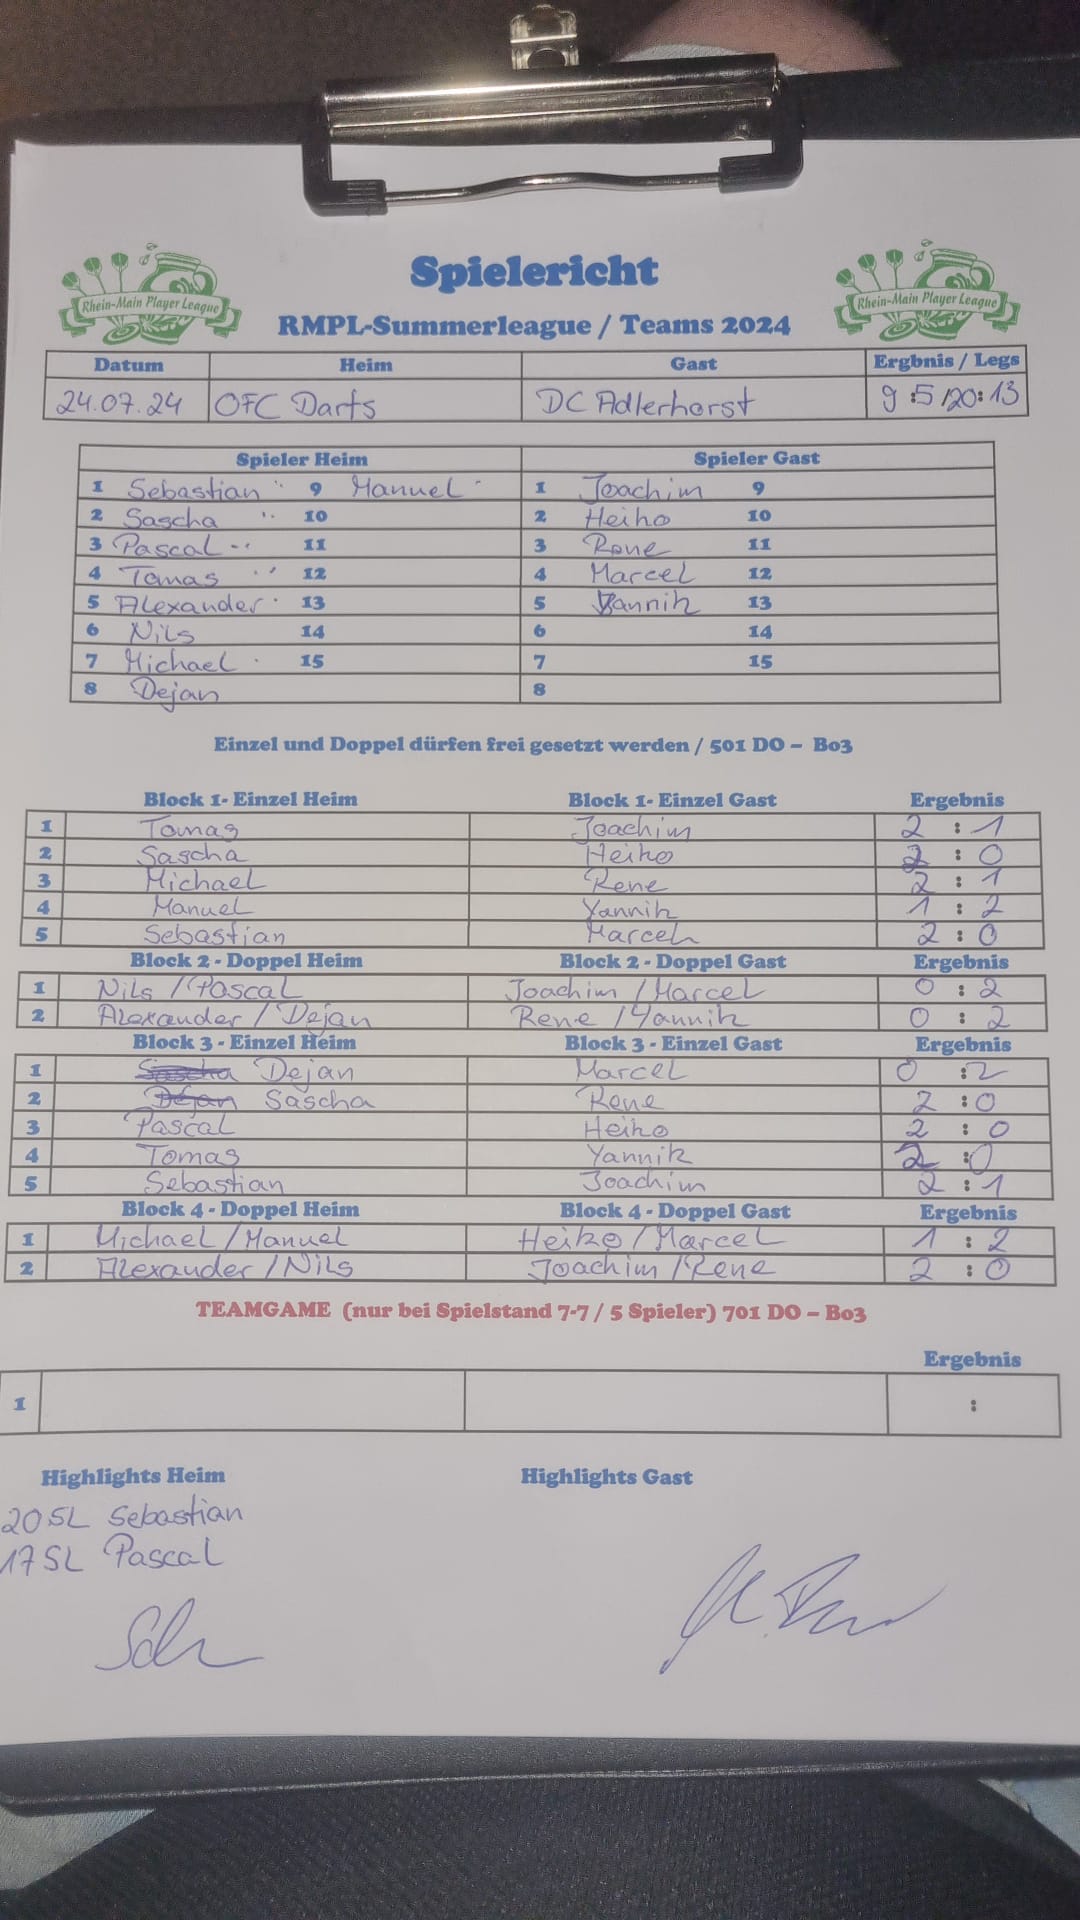 Rhein-Main Player League
Spielericht
Rhein-Main Player League
RMPL-Summerleague / Teams 2024
Datum Heim Gast Ergbnis / Legs
24.07.24 OFC Darts DC Adlerhorst 9:5/20:13
Spieler Heim Spieler Gast
1 Sebastian 9 Manuel 1 Joachim 9
2 Sascha 10 2 Heiko 10
3 Pascal 11 3 Rene 11
4 Tomas 12 4 Marcel 12
5 Alexander 13 5 Yannik 13
6 Nils 14 6 14
7 Michael 15 7 15
8 Dejan 8
Einzel und Doppel dürfen frei gesetzt werden / 501 DO – Bo3
Block 1- Einzel Heim Block 1- Einzel Gast Ergebnis
1 Tomas Joachim 2 : 1
2 Sascha Heiko 2 : 0
3 Michael Rene 2 : 1
4 Manuel Yannik 1 : 2
5 Sebastian Marcel 2 : 0
Block 2 - Doppel Heim Block 2 - Doppel Gast Ergebnis
1 Nils / Pascal Joachim / Marcel 0 : 2
2 Alexander / Dejan Rene / Yannik 0 : 2
Block 3 - Einzel Heim Block 3 - Einzel Gast Ergebnis
1 Sascha Dejan Marcel 0 : 2
2 Dejan Sascha Rene 2 : 0
3 Pascal Heiko 2 : 0
4 Tomas Yannik 2 : 0
5 Sebastian Joachim 2 : 1
Block 4 - Doppel Heim Block 4 - Doppel Gast Ergebnis
1 Michael / Manuel Heiko / Marcel 1 : 2
2 Alexander / Nils Joachim / Rene 2 : 0
TEAMGAME (nur bei Spielstand 7-7 / 5 Spieler) 701 DO – Bo3
Ergebnis
1 :
Highlights Heim Highlights Gast
20 SL Sebastian
17 SL Pascal